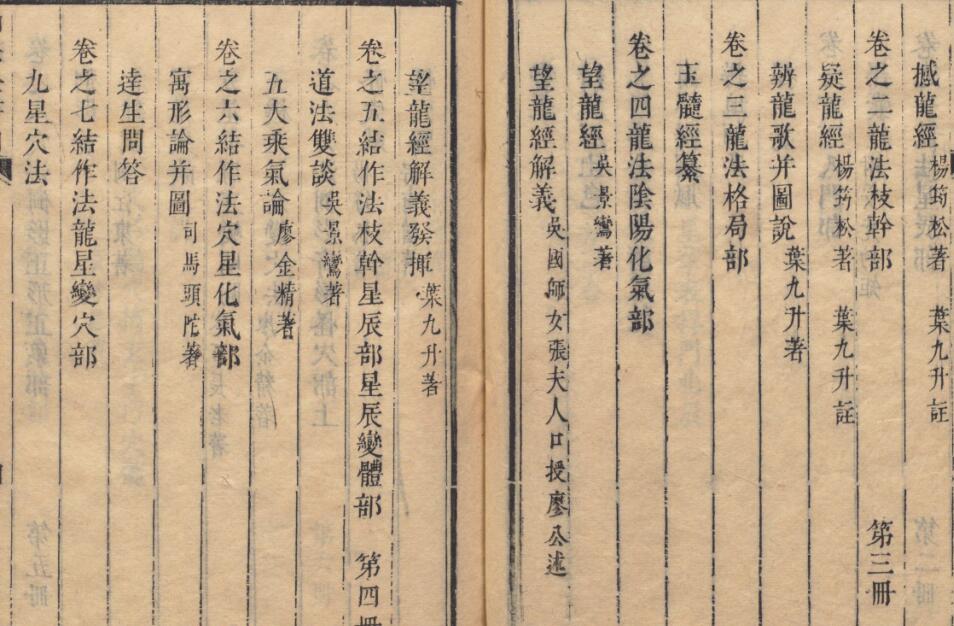 撼龍經 楊筠松著 葉九升註
卷之二龍法枝幹部 第三冊
疑龍經 楊筠松著 葉九升註
辨龍歌并圖說 葉九升著
卷之三龍法格局部
玉髓經纂
卷之四龍法陰陽化氣部
望龍經 吳景鸞著
望龍經解義 吳國師女張夫人口授廖公述
望龍經解義發揮 葉九升著
卷之五結作法枝幹星辰部星辰變體部 第四冊
道法雙談 吳景鸞著
五大乘氣論 廖金精著
卷之六結作法穴星化氣部
寓形論并圖 司馬頭陀著
達生問答
卷之七結作法龍星變穴部
九星穴法